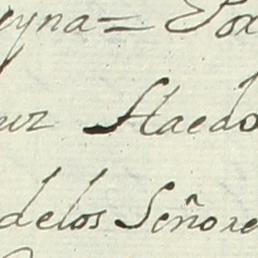 eyna = Por
uz Haedo
delos Señore